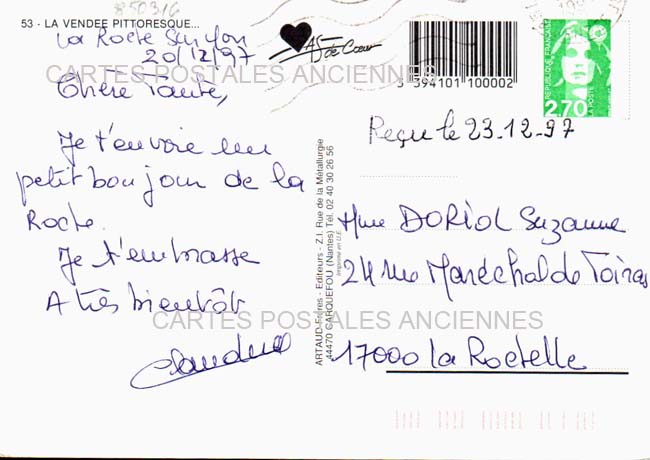 850316
53 - LA VENDEE PITTORESQUE...
La Roche Sur Yon
20/12/97
CARTES POSTALES ANCIENNES
Chère Tante,
Je t'envoie un
petit bonjour de la
Roche.
Je t'embrasse
A très bientôt
As de Cœur
3 394101 100002
REPUBLIQUE FRANÇAISE
2,70
LA POSTE
Reçu le 23.12.97
ARTAUD Frères - Editeurs - Z.I. Rue de la Métallurgie
44470 CARQUEFOU (Nantes) Tél. 02 40 30 26 56
Imprimé en U.E.
Mme DORIOL Suzanne
24 rue Maréchal de Toiras
CARTES POSTALES ANCIENNES
17000 La Rochelle